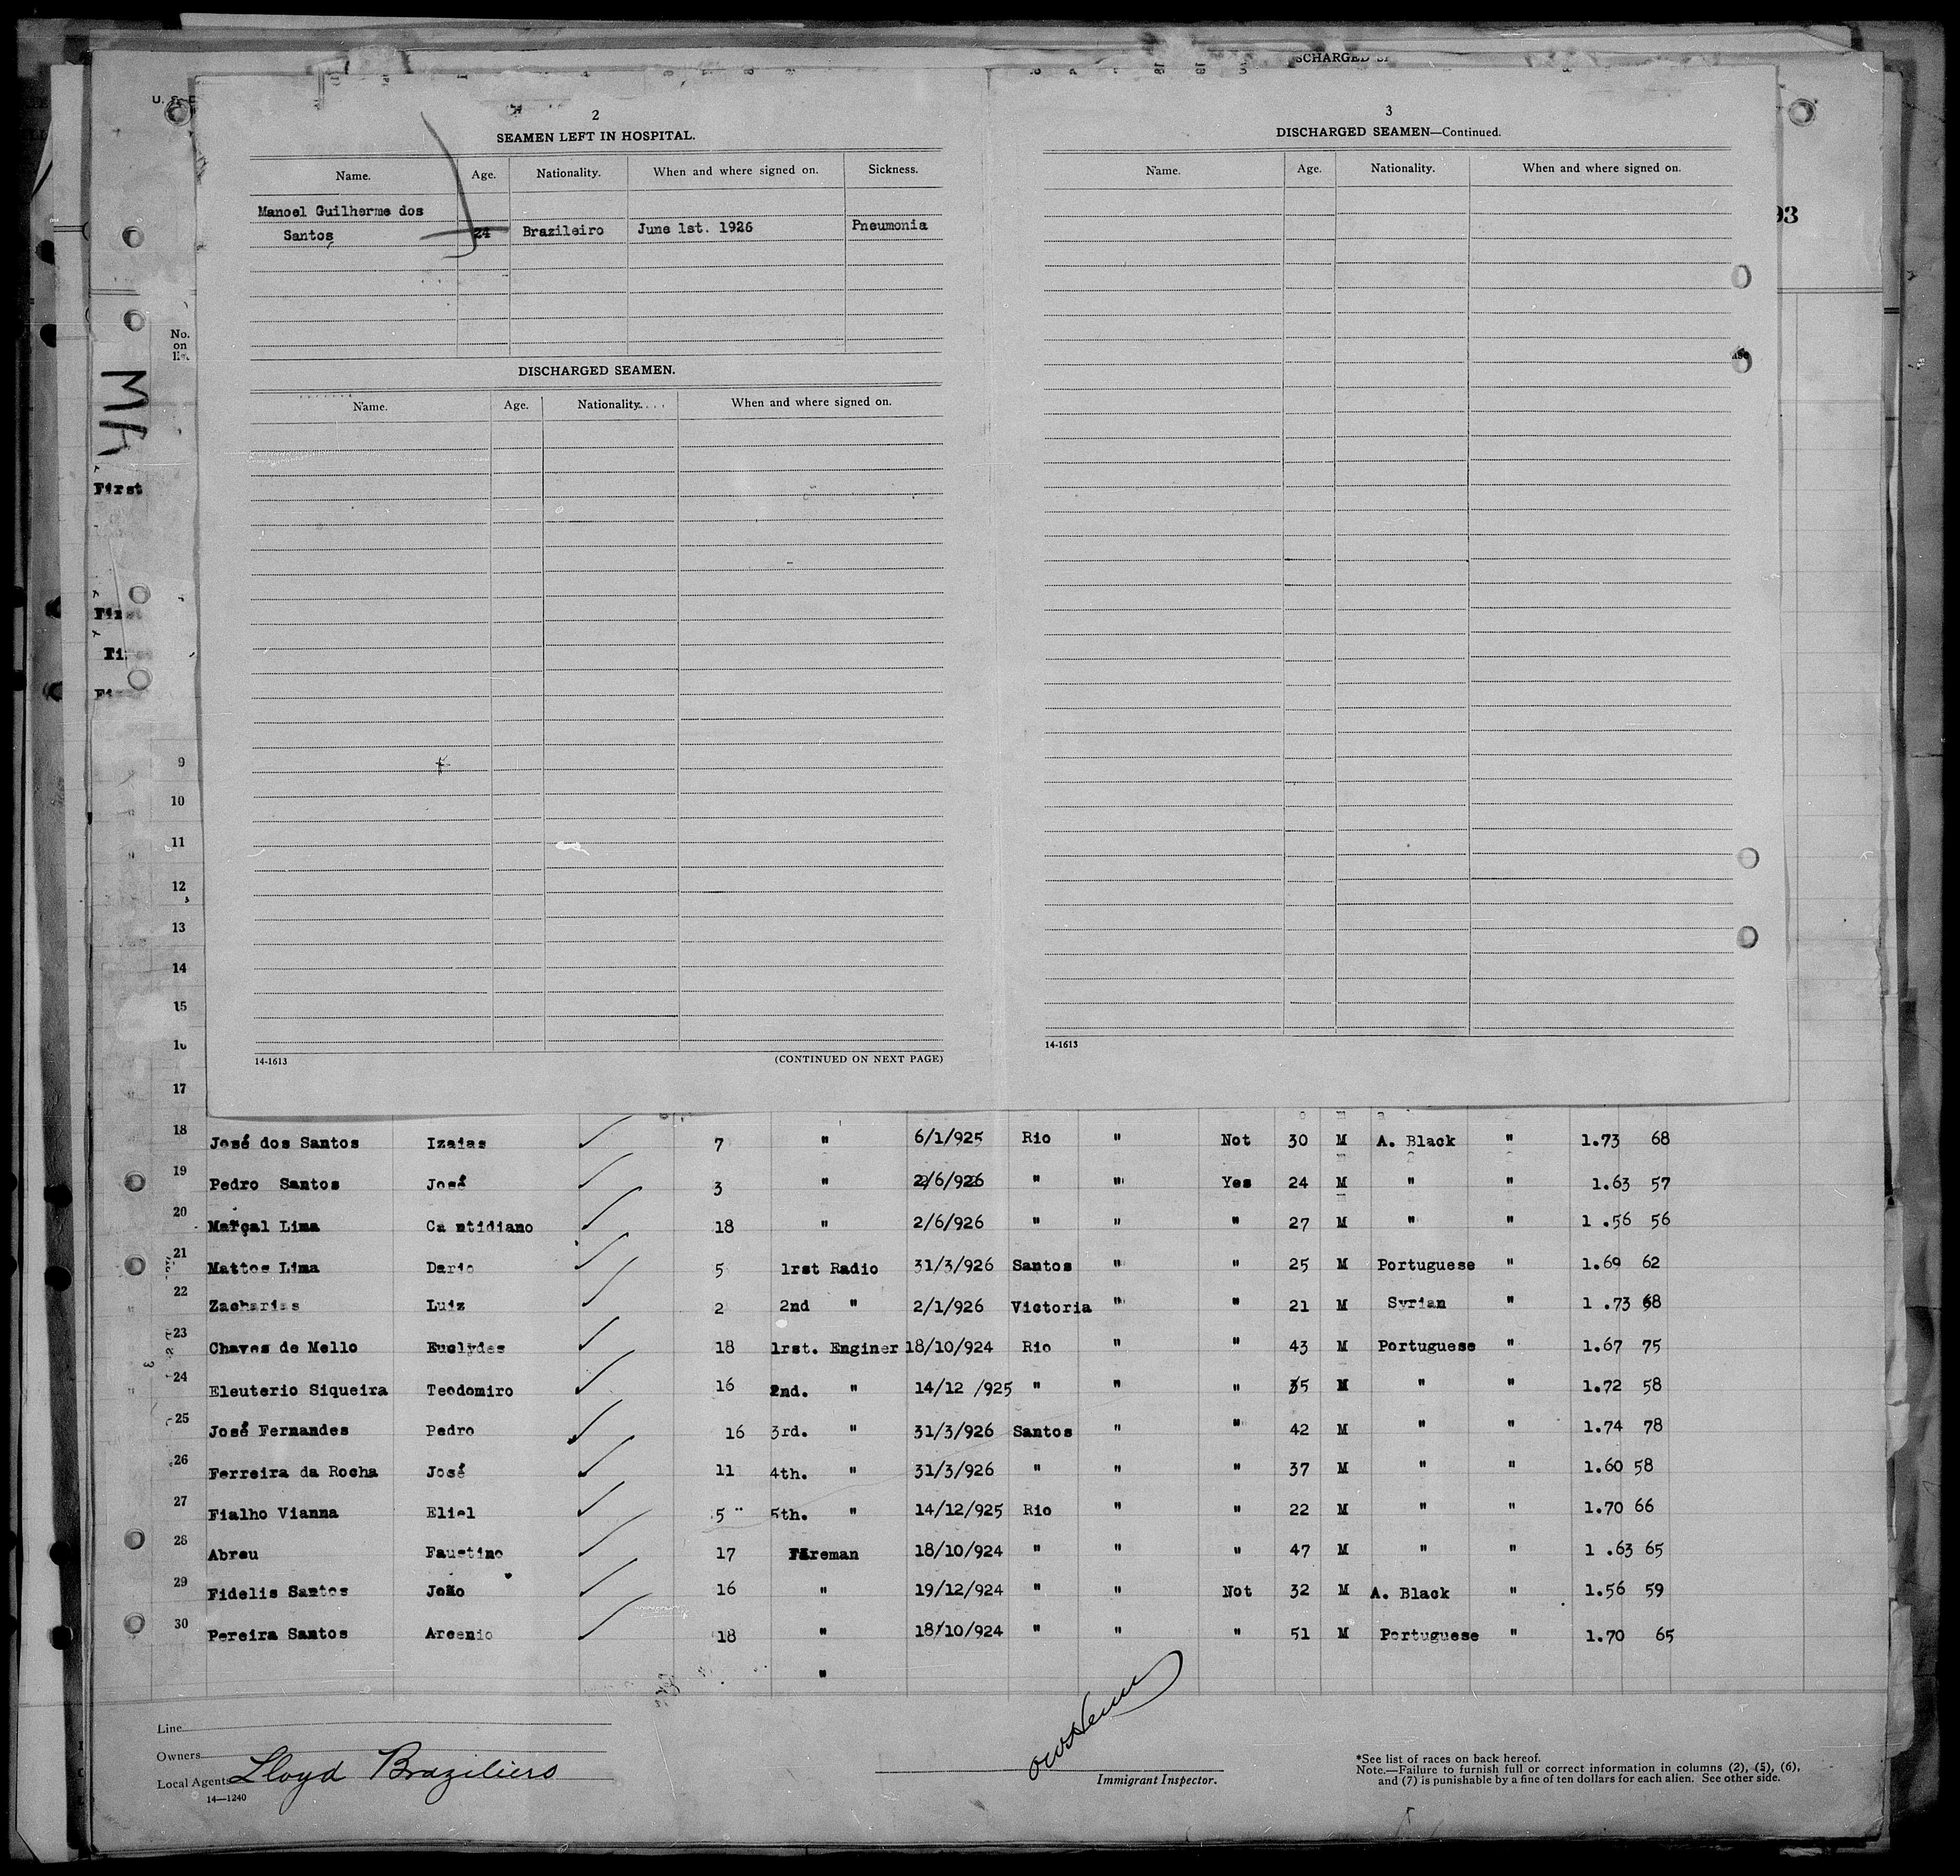 SCHARGED
U. S.
2
SEAMEN LEFT IN HOSPITAL.
Name. Age. Nationality. When and where signed on. Sickness.
Manoel Guilherme dos
Santos 24 Brazileiro June 1st. 1926 Pneumonia
DISCHARGED SEAMEN.
Name. Age. Nationality. When and where signed on.
14-1613 (CONTINUED ON NEXT PAGE)
3
DISCHARGED SEAMEN—Continued.
Name. Age. Nationality. When and where signed on.
14-1613
93
No.
on
First
9
10
11
12
13
14
15
16
17
18 José dos Santos Izaias 7 " 6/1/925 Rio " Not 30 M A. Black " 1.73 68
19 Pedro Santos José 3 " 2/6/926 " " Yes 24 M " " 1.63 57
20 Marçal Lima Cantidiano 18 " 2/6/926 " " " 27 M " " 1.56 56
21 Mattos Lima Dario 5 1rst Radio 31/3/926 Santos " " 25 M Portuguese " 1.69 62
22 Zacharias Luiz 2 2nd " 2/1/926 Victoria " " 21 M Syrian " 1.73 68
23 Chaves de Mello Euclydes 18 1rst. Enginer 18/10/924 Rio " " 43 M Portuguese " 1.67 75
24 Eleuterio Siqueira Teodomiro 16 2nd. " 14/12/925 " " " 35 M " " 1.72 58
25 José Fernandes Pedro 16 3rd. " 31/3/926 Santos " " 42 M " " 1.74 78
26 Ferreira da Rocha José 11 4th. " 31/3/926 " " " 37 M " " 1.60 58
27 Fialho Vianna Eliel 5 5th. " 14/12/925 Rio " " 22 M " " 1.70 66
28 Abreu Faustino 17 Fireman 18/10/924 " " " 47 M " " 1.63 65
29 Fidelis Santos João 16 " 19/12/924 " " Not 32 M A. Black " 1.56 59
30 Pereira Santos Arcenio 18 " 18/10/924 " " " 51 M Portuguese " 1.70 65
"
Line
Owners
Local Agents Lloyd Braziliero
14—1240
Immigrant Inspector.
*See list of races on back hereof.
Note.—Failure to furnish full or correct information in columns (2), (5), (6),
and (7) is punishable by a fine of ten dollars for each alien. See other side.